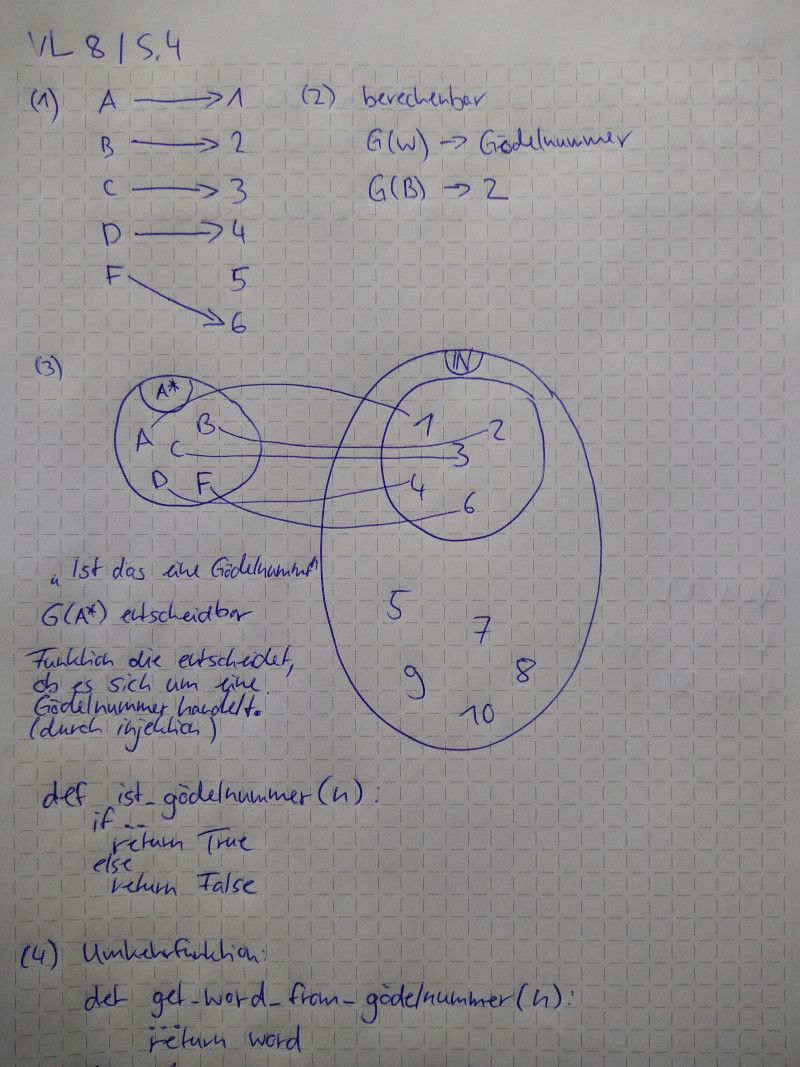 VL 8 / S.4
(1) A → 1
B → 2
C → 3
D → 4
F 5
6
(2) berechenbar
G(W) → Gödelnummer
G(B) → 2
(3)
A*
A B
C
D F
IN
1 2
3
4
6
5
7
9 8
10
"Ist das eine Gödelnummer"
G(A*) entscheidbar
Funktion die entscheidet,
ob es sich um eine
Gödelnummer handelt.
(durch injektion)
def ist_gödelnummer(n):
if ...
return True
else
return False
(4) Umkehrfunktion:
def get_word_from_gödelnummer(n):
...
return word